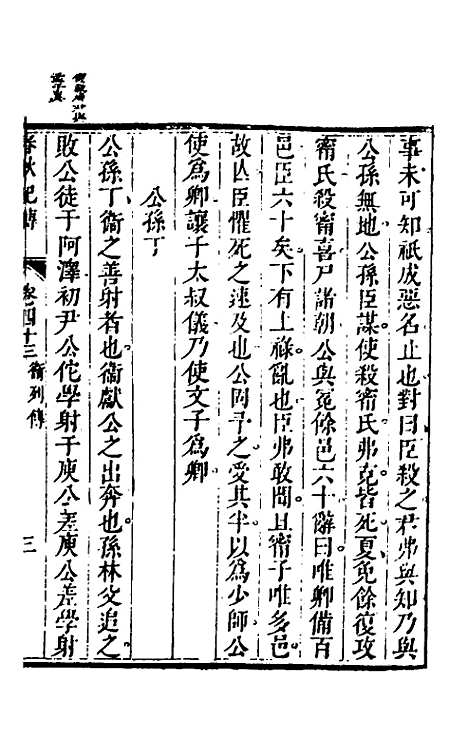 事未可知祇成惡名止也對曰臣殺之君弗與知乃與
公孫無地公孫臣謀使殺甯氏弗克皆死夏免餘復攻
甯氏殺甯喜尸諸朝公與免餘邑六十辭曰唯卿備百
邑臣六十矣下有上祿亂也臣弗敢聞且甯子唯多邑
故死臣懼死之速及也公固予之受其半以為少師公
使為卿讓于太叔儀乃使文子為卿
公孫丁
公孫丁衛之善射者也衛獻公之出奔也孫林父追之
敗公徒于阿澤初尹公佗學射于庾公差庾公差學射
春秋紀傳
卷四十三 衛列傳
三